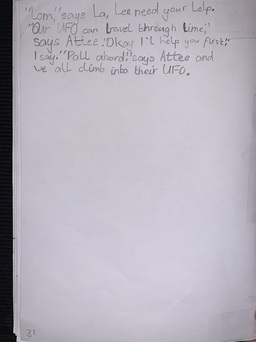 "Tom," says La, Lee need your help.
"Our UFO can travel through time,"
says Attee. "Okay I'll help you first,"
I say. "Pall abord," says Attee and
we all climb into their UFO.
31